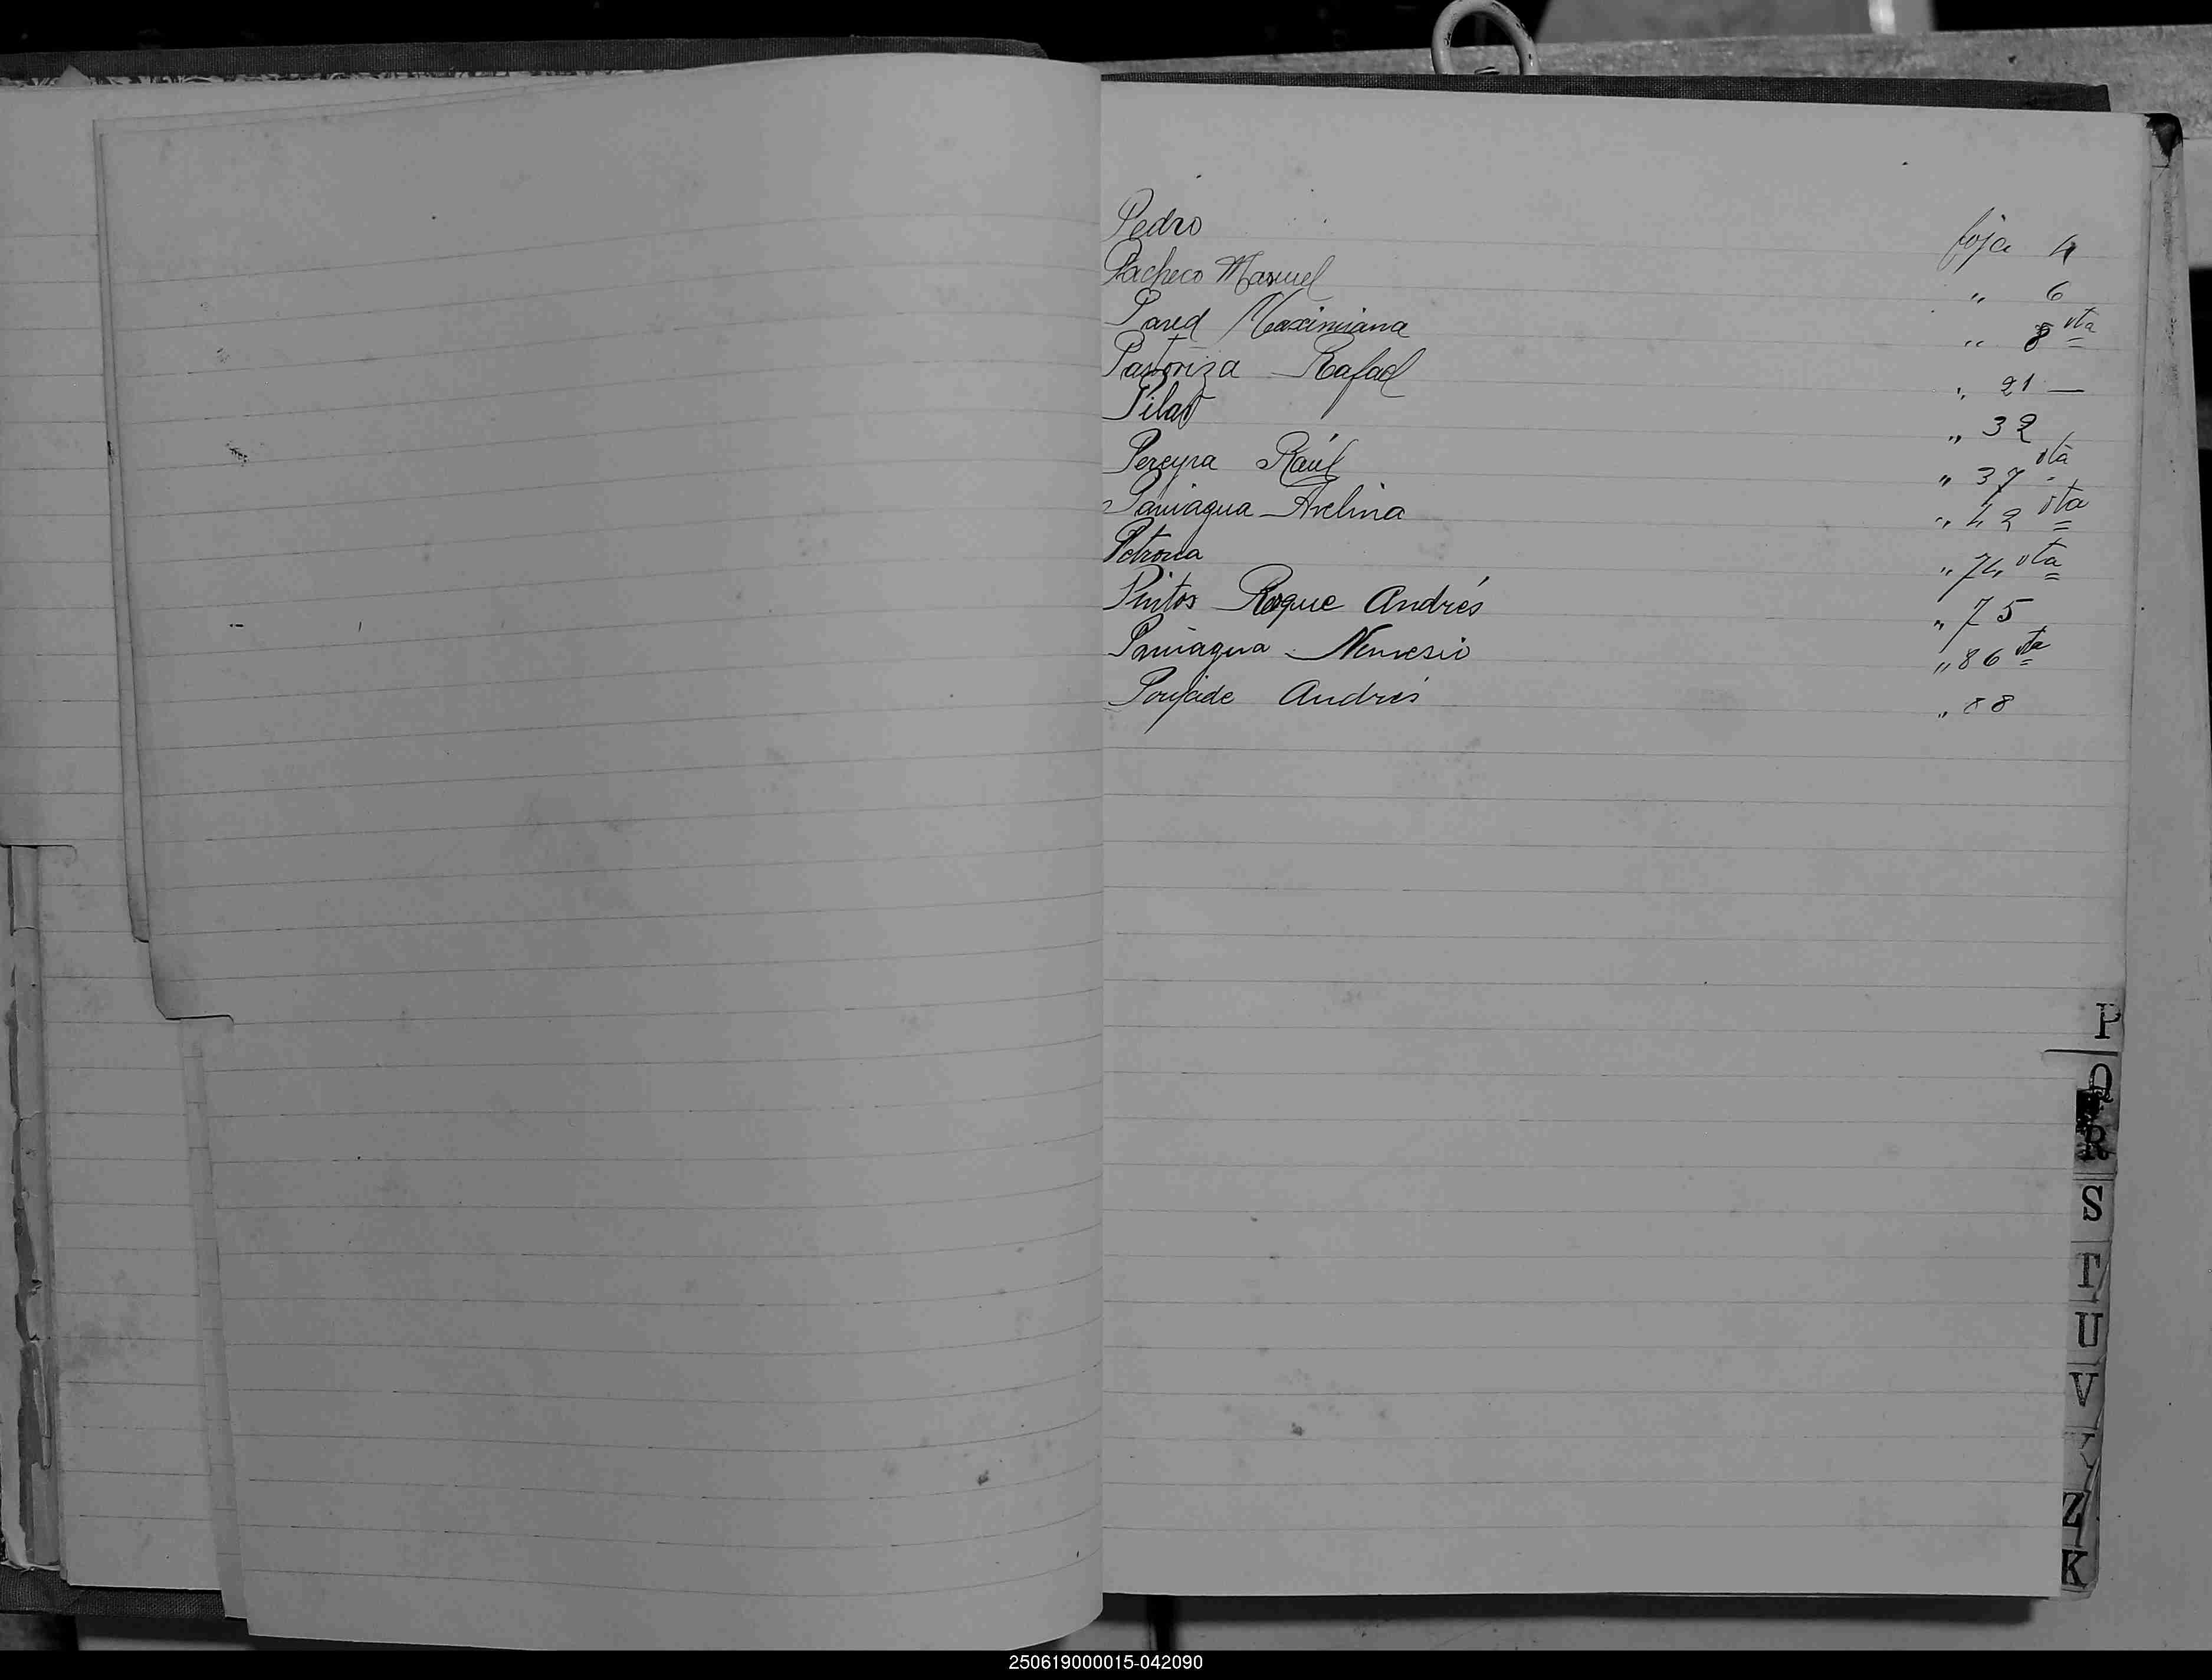 Pedro foja 4
Pacheco Manuel " 6
Pared Maximiana " 8 vta
Pastoriza Rafael " 21 —
Pilar " 32
Pereyra Raúl " 37 vta
Paniagua Avelina " 42 vta
Petrona " 74 vta
Pintos Roque Andrés " 75
Paniagua Nemesio " 86 vta
Poujade Andrés " 88
P
Q
R
S
T
U
V
Y
Z
K
250619000015-042090